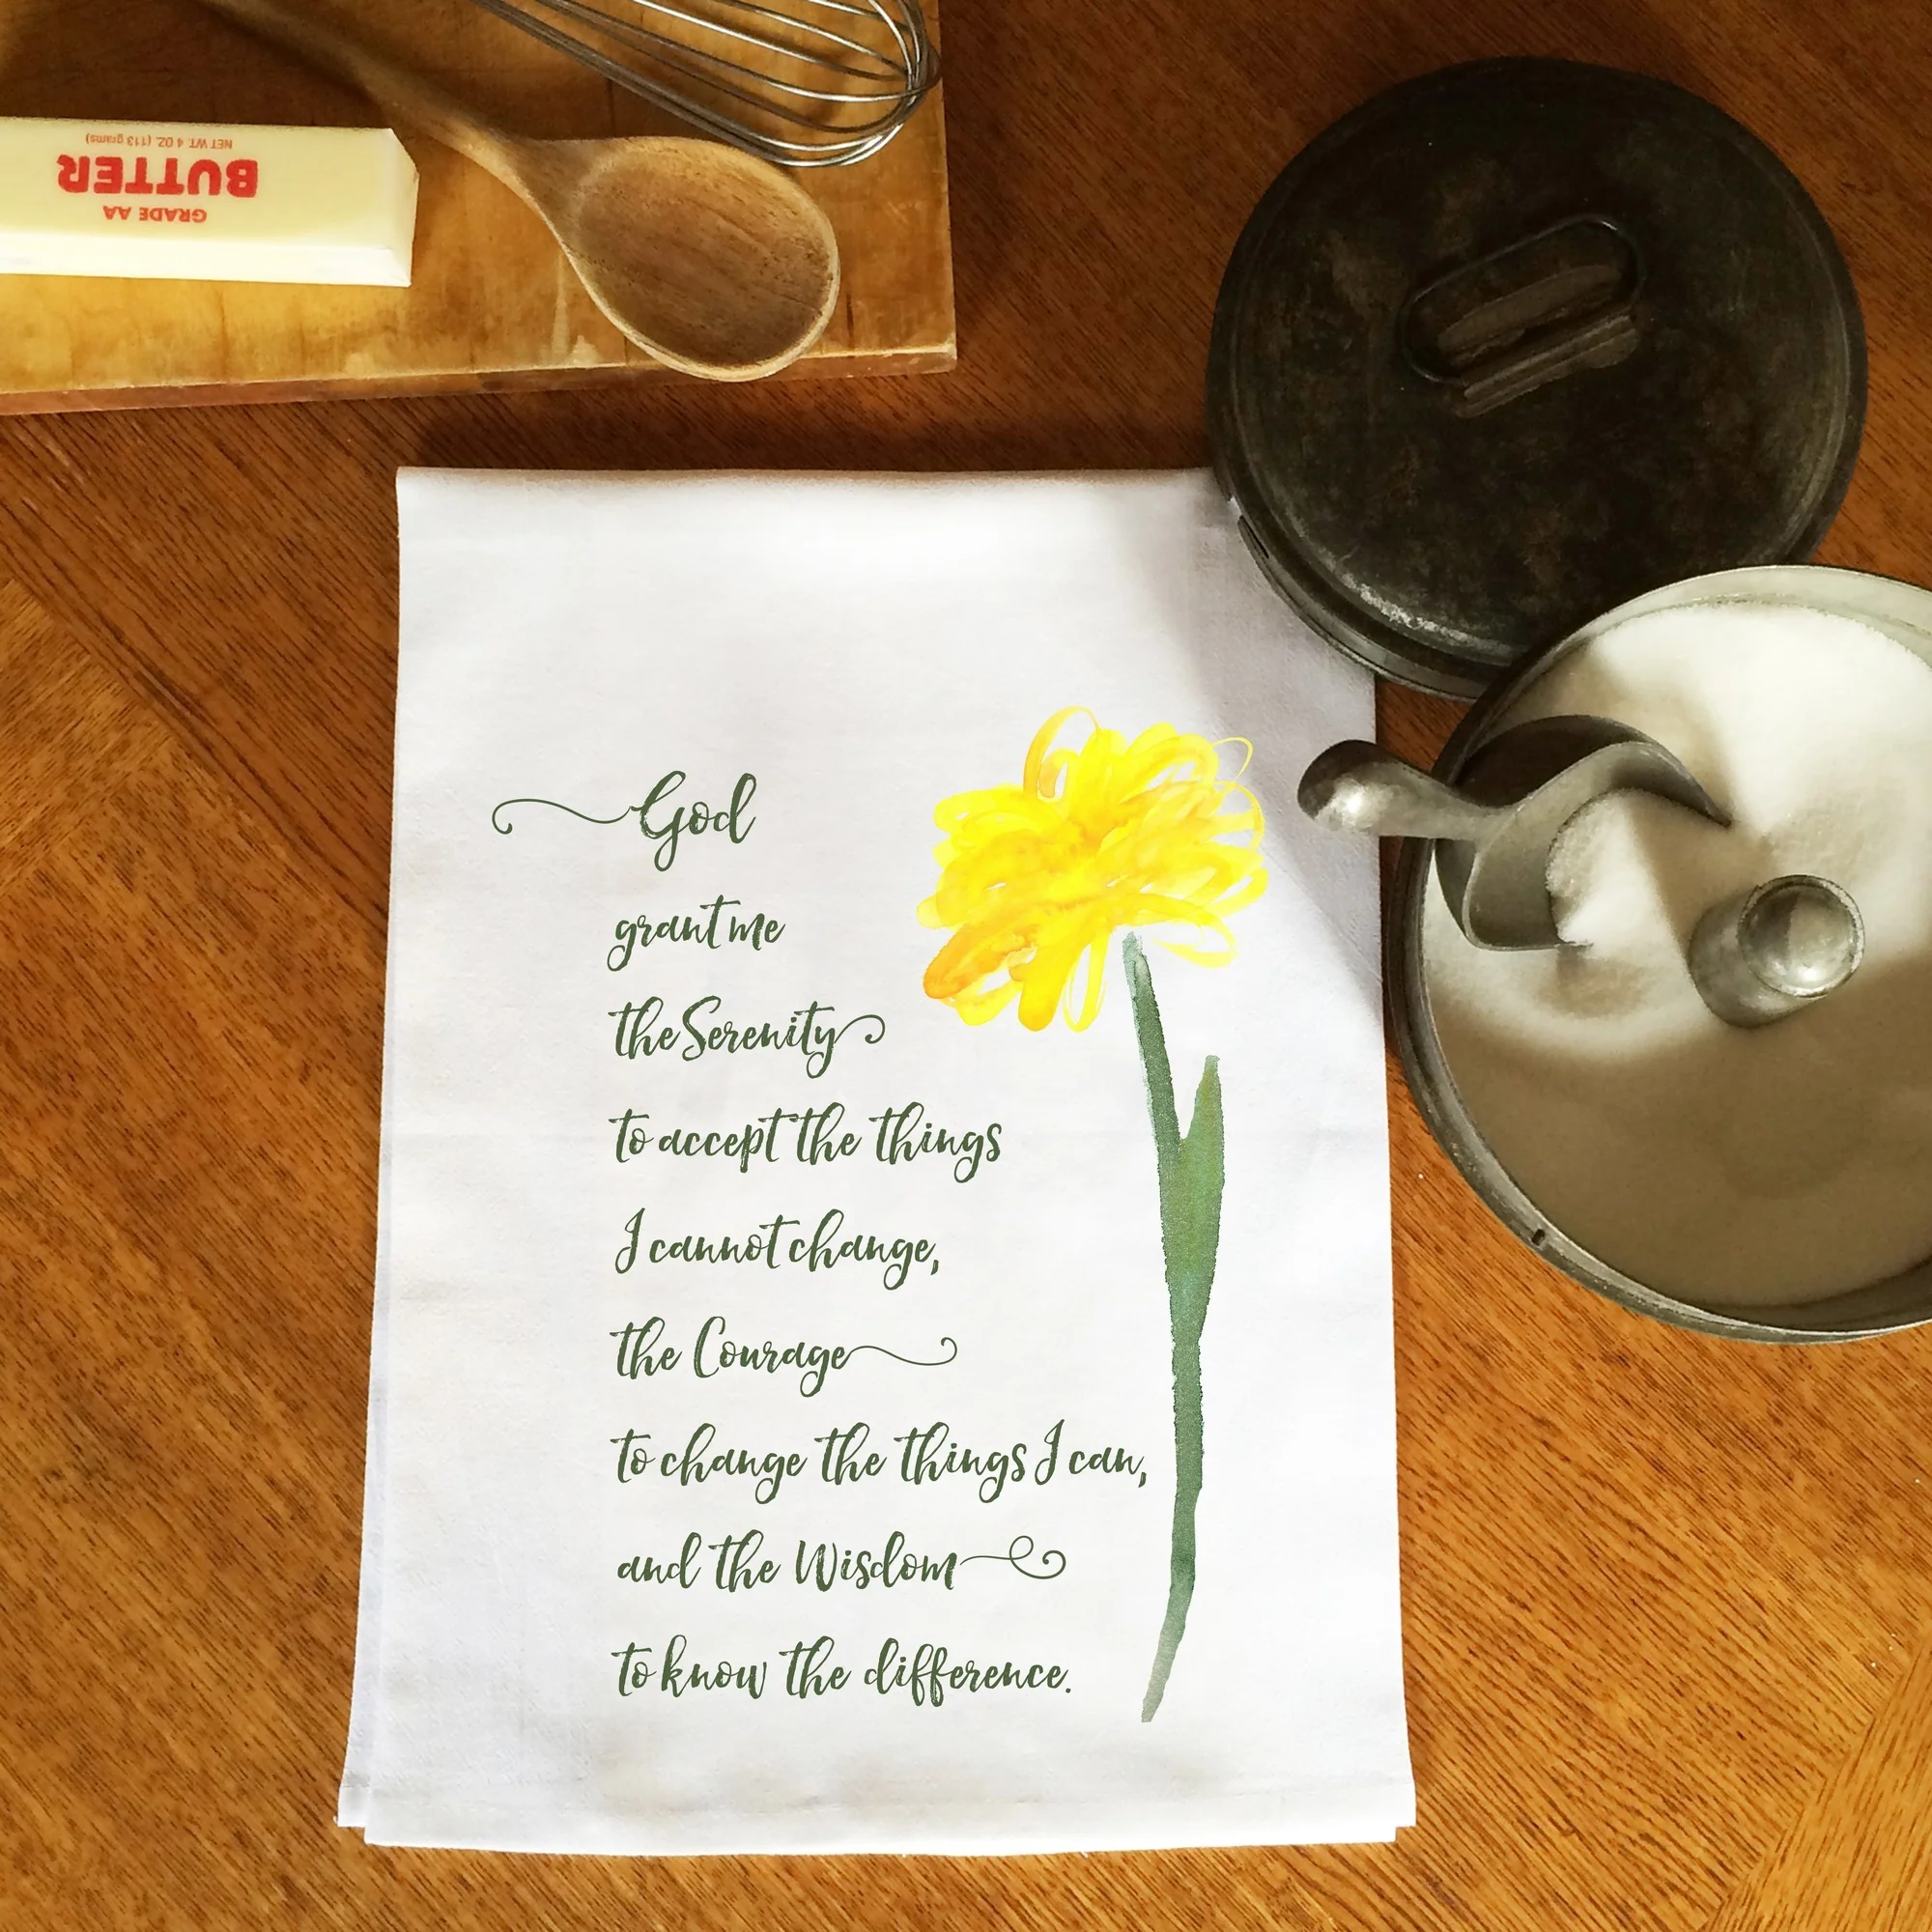 GRADE AA
BUTTER
NET WT. 4 OZ. (113 grams)
God
grant me
the Serenity
to accept the things
I cannot change,
the Courage
to change the things I can,
and the Wisdom
to know the difference.